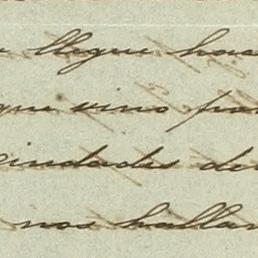 llegue has
que vino po
cindades de
nos halla